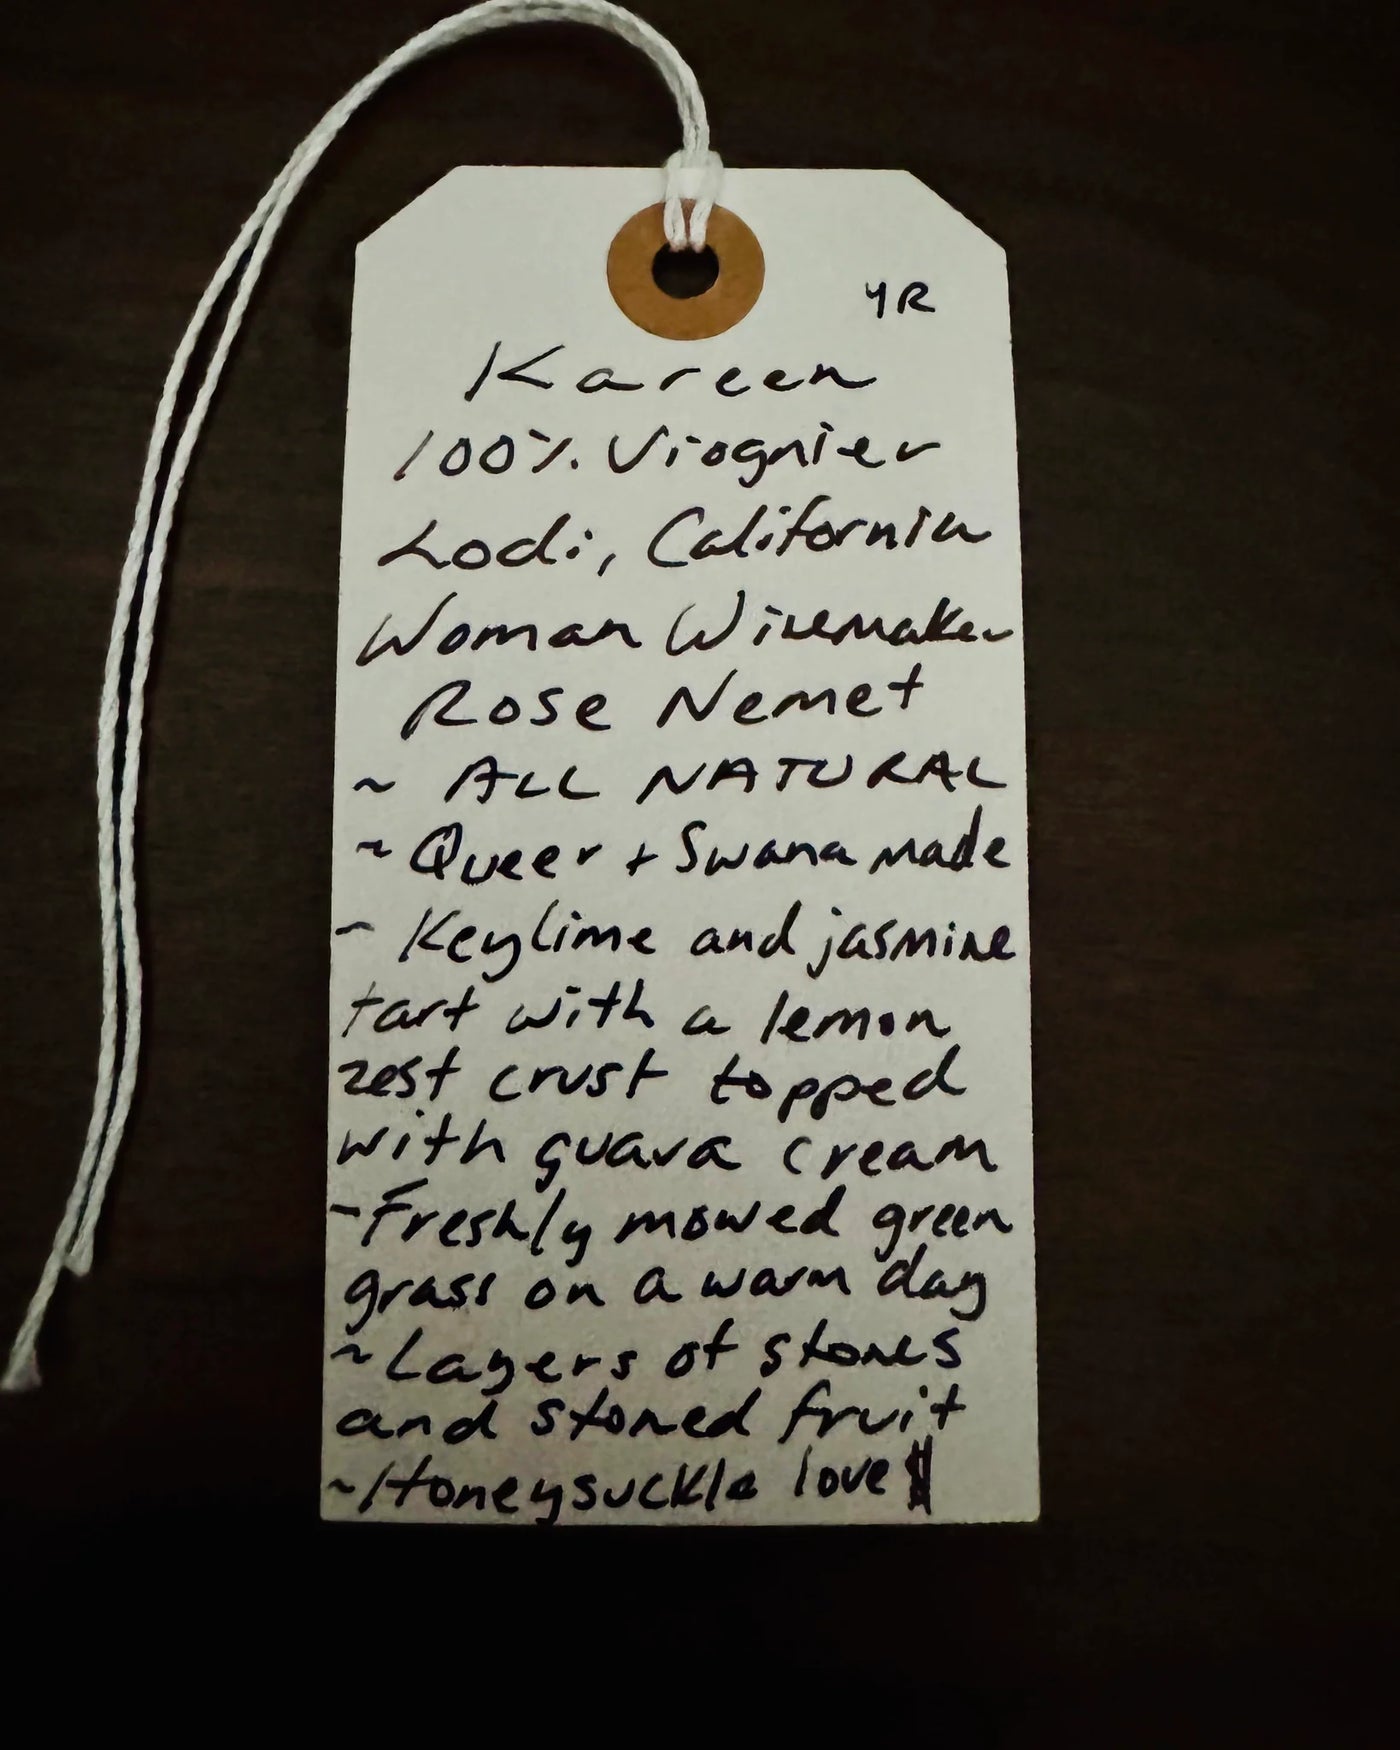 YR
Kareen
100% Viognier
Lodi, California
Woman Winemaker
Rose Nemet
~ ALL NATURAL
~ Queer + Swana made
- Keylime and jasmine
tart with a lemon
zest crust topped
with guava cream
- Freshly mowed green
grass on a warm day
~ Layers of stones
and stoned fruit
~ Honeysuckle love